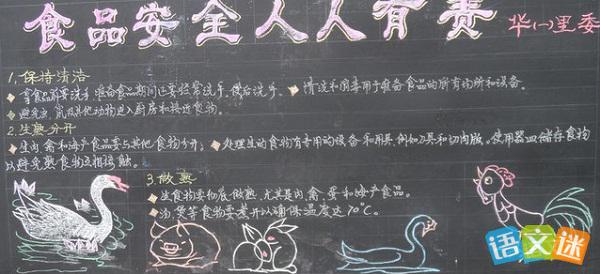 食品安全人人有责
华(一)里委
1.保持清洁
◆ 拿食品前要洗手,准备食品期间还要经常洗手,便后洗手。 ◆ 清洗和消毒用于准备食品的所有场所和设备。
◆ 避免虫、鼠及其他动物进入厨房和接近食物。
2.生熟分开
◆ 生肉、禽和海产食品要与其他食物分开; ◆ 处理生的食物有专用的设备和用具,例如刀具和切肉版。使用器皿储存食物
以避免熟食物互相接触。
3.做熟
◆ 生食物要彻底做熟,尤其是肉、禽、蛋和海产食品。
◆ 汤、煲等食物要煮开以确保温度达70℃。
语文迷